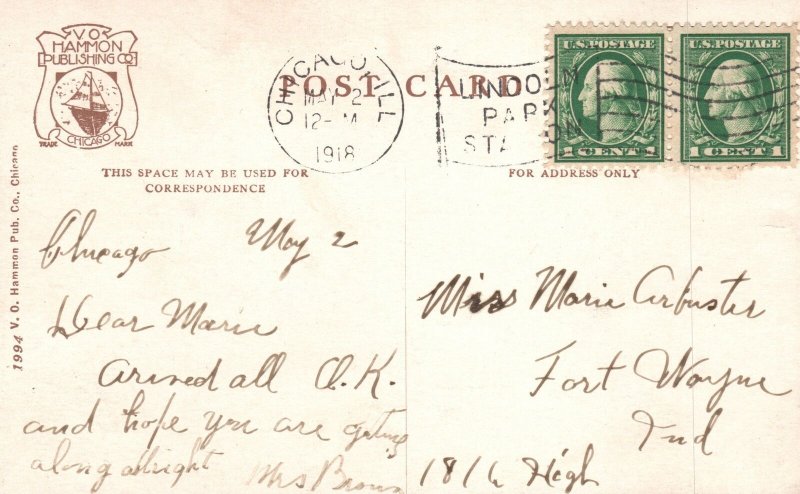 V O
HAMMON
PUBLISHING CO
CHICAGO
TRADE MARK
POST CARD
CHICAGO ILL
MAY 2
12-M
1918
LINCOLN
PARK
STATION
U.S. POSTAGE
1 CENT 1
U.S. POSTAGE
1 CENT 1
THIS SPACE MAY BE USED FOR
CORRESPONDENCE
FOR ADDRESS ONLY
1994 V. O. Hammon Pub. Co., Chicago
Chicago May 2
Dear Marie
arived all O.K.
and hope you are getting
along allright
Mrs Brown
Miss Marie Arbuster
Fort Wayne
Ind
1816 High